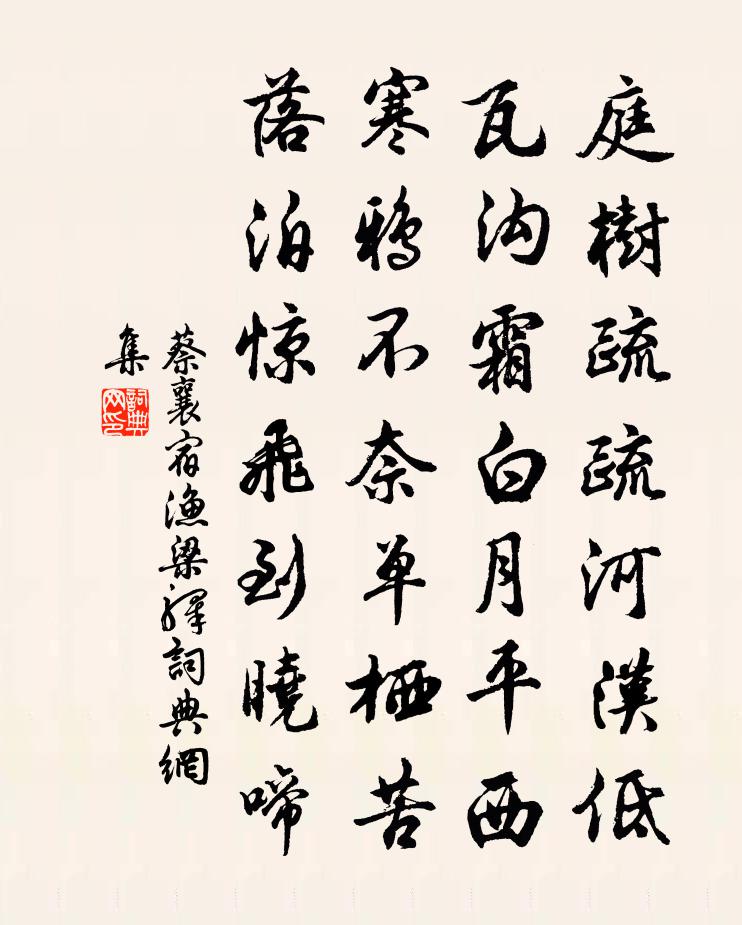 庭樹疏疏河漢低
瓦沟霜白月平西
寒鸦不奈单栖苦
落泊惊飛到曉啼
蔡襄宿漁梁驛詞典網
集
詞典
网印